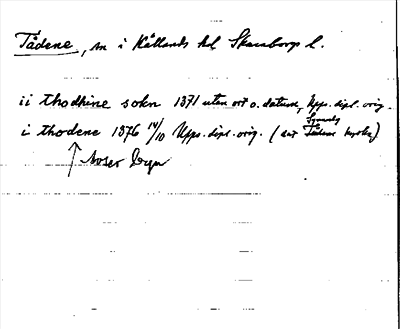 Tådene, sn i Kållands hd Skaraborgs l.
ii thodhine sokn 1371 utan ort o. datum, Upps. dipl. orig.
i thodene 1376 14/10 Upps. dipl. orig. (
Tådene kyrka)
avser byn